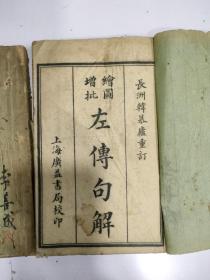 長洲韓慕廬重訂
繪圖
增批
左傳句解
上海廣益書局校印